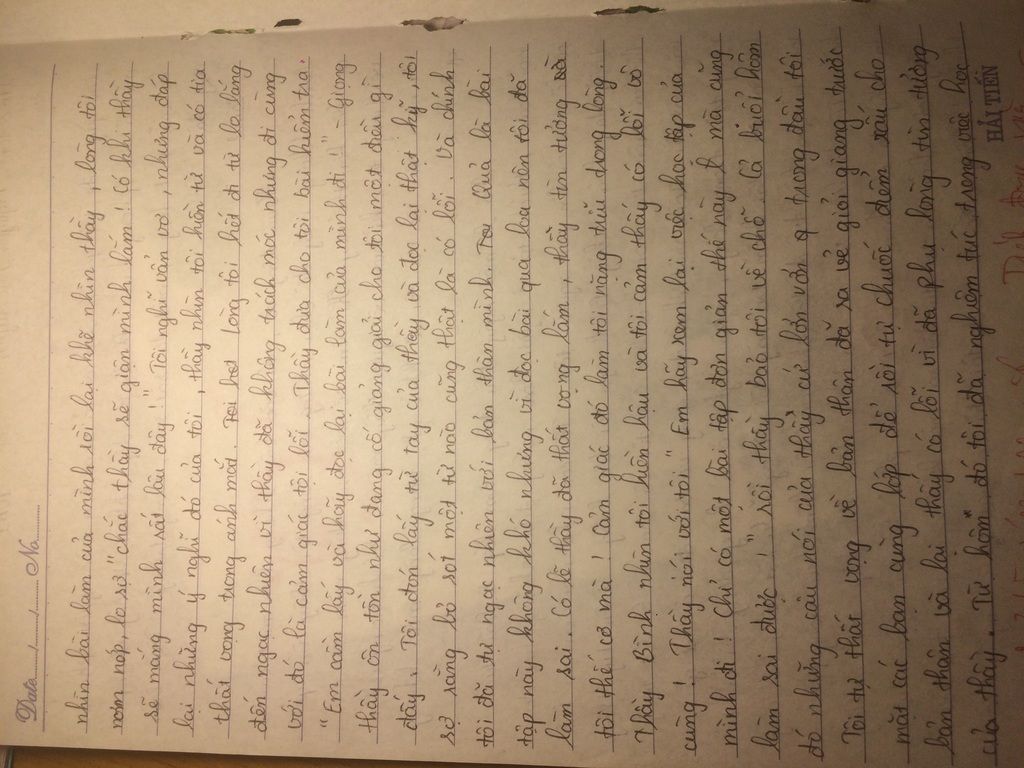 Date......./......./....... No...........
nhìn bài làm của mình rồi lại khẽ nhìn thầy, lòng tôi
nơm nớp, lo sợ "chắc thầy sẽ giận mình lắm! Có khi thầy
sẽ mắng mình rất lâu đây!" Tôi nghĩ vẩn vơ, nhưng đáp
lại những ý nghĩ đó của tôi, thầy nhìn tôi hiền từ và có tia
thất vọng trong ánh mắt. lòng tôi hết đi từ lo lắng
đến ngạc nhiên vì thầy đã không trách móc nhưng đi cùng
với đó là cảm giác tội lỗi. Thầy đưa cho tôi bài kiểm tra.
"Em cầm lấy và hãy đọc lại bài làm của mình đi!" - Giọng
thầy ôn tồn như đang cố giảng giải cho tôi một điều gì
đấy. Tôi đón lấy từ tay của thầy và đọc lại thật kỹ, tôi
sợ rằng bỏ sót một từ nào cũng thật là có lỗi. Và chính
tôi đã tự ngạc nhiên với bản thân mình. Quả là bài
tập này không khó nhưng vì đọc bài qua loa nên tôi đã
làm sai. Có lẽ thầy đã thất vọng lắm, thầy tin tưởng
tôi thế cơ mà! Cảm giác đó làm tôi nặng trĩu trong lòng.
Thầy Bình nhìn tôi hiền hậu và tôi cảm thấy có lỗi vô
cùng! Thầy nói với tôi "Em hãy xem lại việc học tập của
mình đi! Chỉ có một bài tập đơn giản thế này mà cũng
làm sai được!" rồi thầy bảo tôi về chỗ. Cả buổi hôm
đó những câu nói của thầy cứ lởn vởn trong đầu tôi
Tôi tự thất vọng về bản thân đã ra vẻ giỏi giang trước
mặt các bạn cùng lớp để rồi tự chuốc điểm xấu cho
bản thân và lại thấy có lỗi vì đã phụ lòng tin tưởng
của thầy. Từ hôm đó tôi đã nghiêm túc trong việc học
HẢI TIẾN